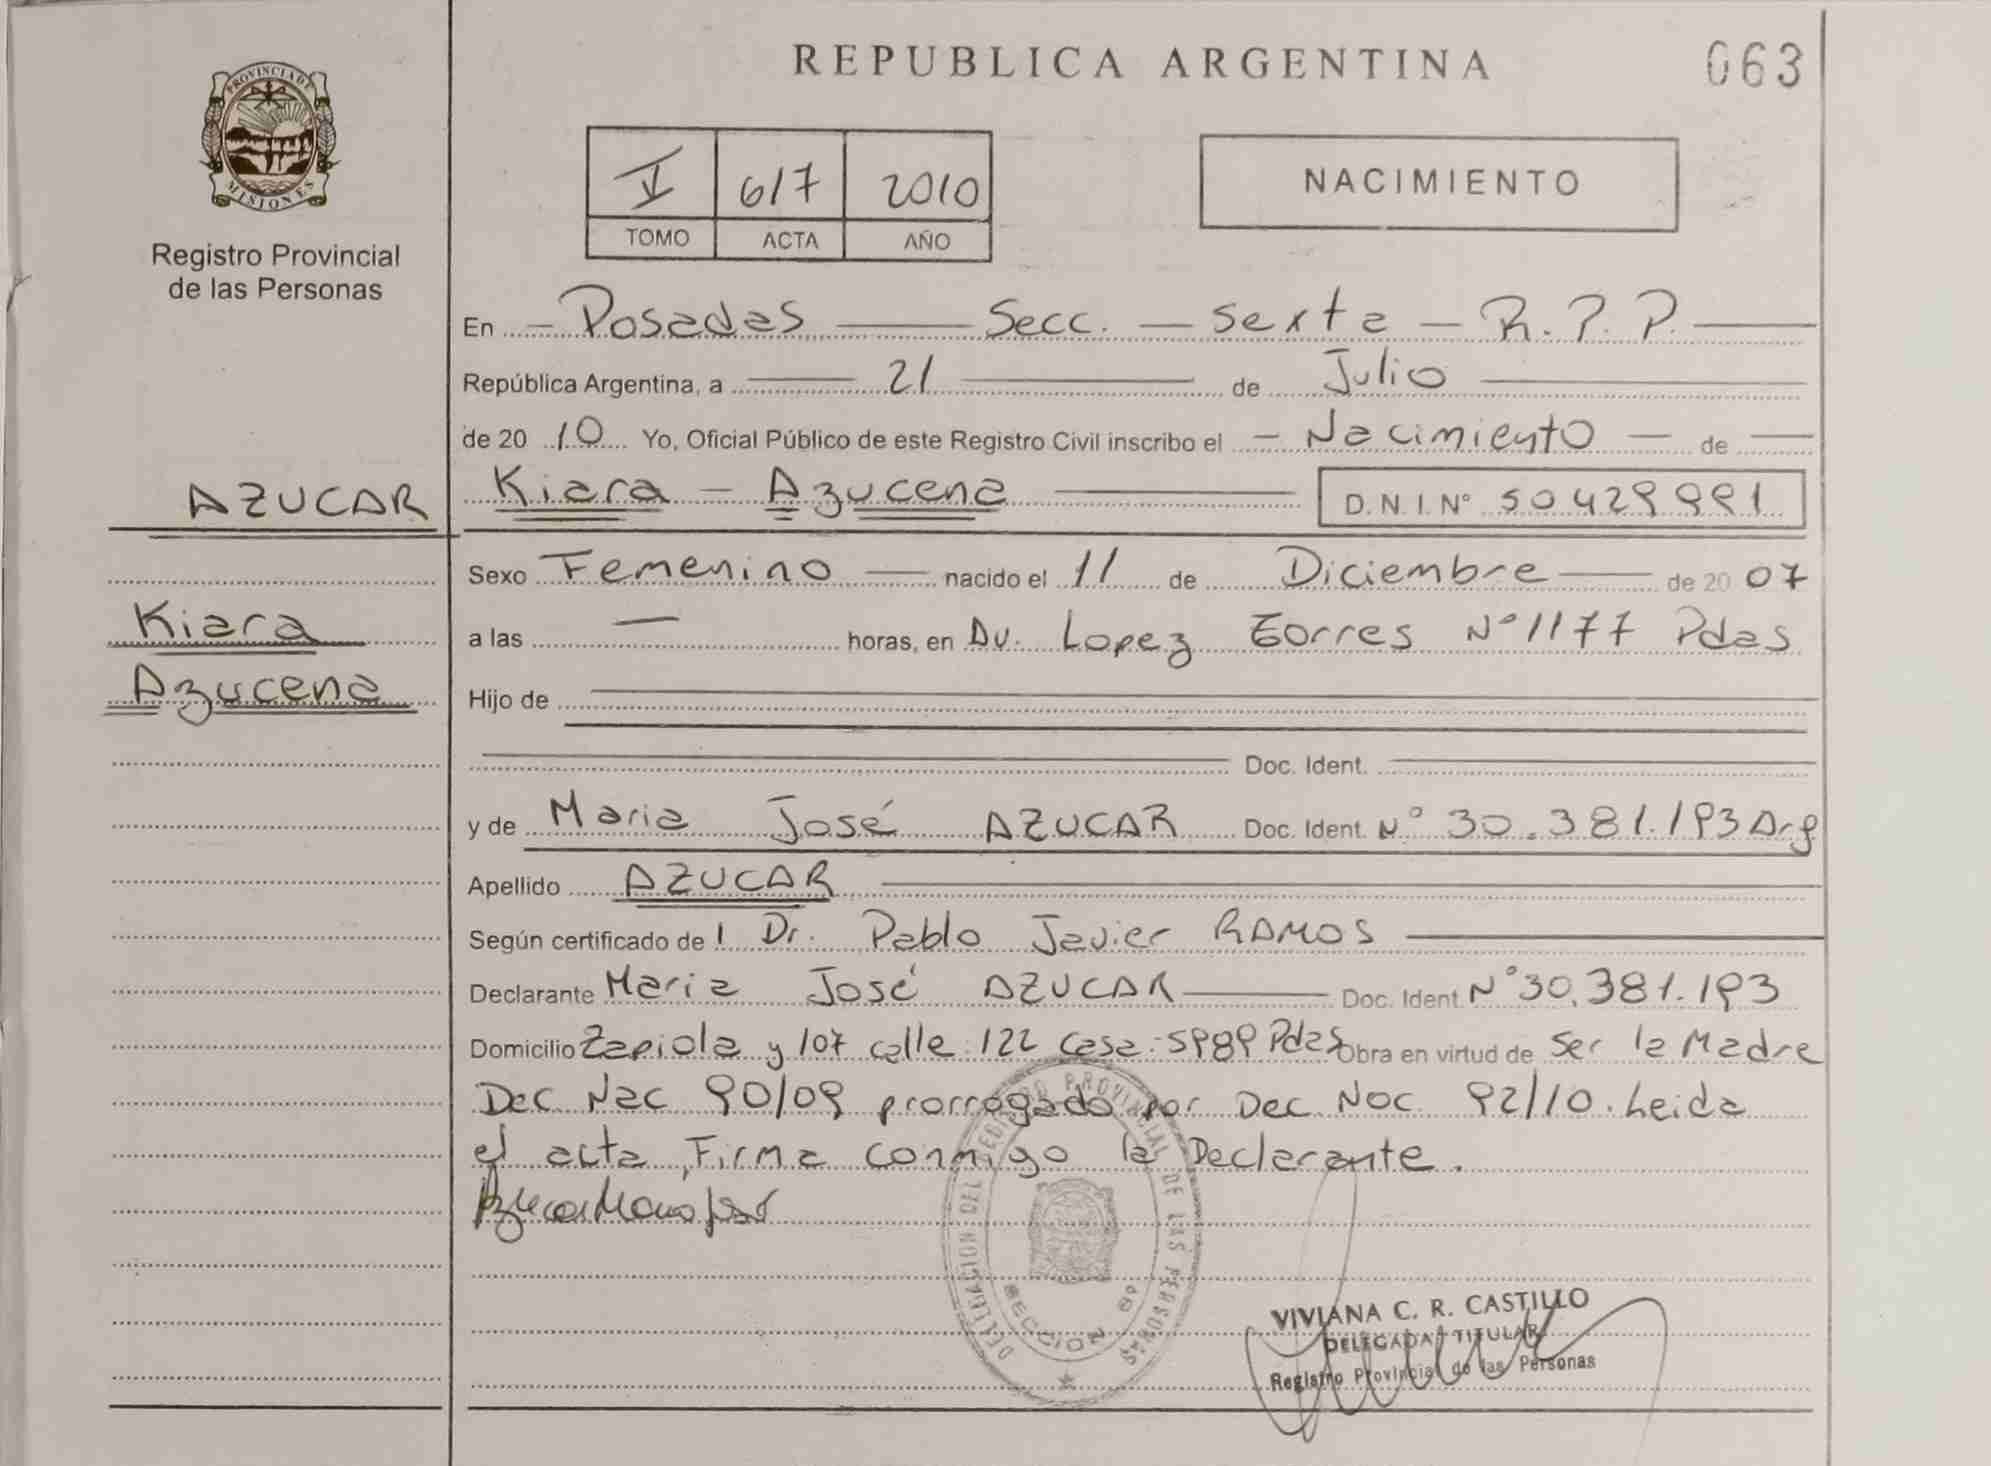 REPUBLICA ARGENTINA
063
PROVINCIA DE
MISIONES
Registro Provincial
de las Personas
I 617 2010
TOMO ACTA AÑO
NACIMIENTO
En - Posadas - Secc. - Sexta - R.P.P.
República Argentina, a 21 de Julio
de 2010 Yo, Oficial Público de este Registro Civil inscribo el - Nacimiento - de
AZUCAR
Kiara - Azucena D.N.I. N° 50429991
Kiara
Azucena
Sexo Femenino nacido el 11 de Diciembre de 2007
a las - horas, en Av. Lopez Torres N° 1177 Pdas
Hijo de
Doc. Ident.
y de Maria José AZUCAR Doc. Ident. N° 30.381.193 Arg
Apellido AZUCAR
Según certificado de l Dr. Pablo Javier RAMOS
Declarante Maria José AZUCAR Doc. Ident. N° 30.381.193
Domicilio Zapiola y 107 calle 122 Casa - 5989 Pdas Obra en virtud de Ser la Madre
Dec Nac 90/09 prorrogado por Dec Noc 92/10. Leida
el acta, Firma conmigo la Declarante.
DELEGACION DEL REGISTRO PROVINCIAL DE LAS PERSONAS
SECCION 6ª
VIVIANA C. R. CASTILLO
DELEGADA TITULAR
Registro Provincial de las Personas